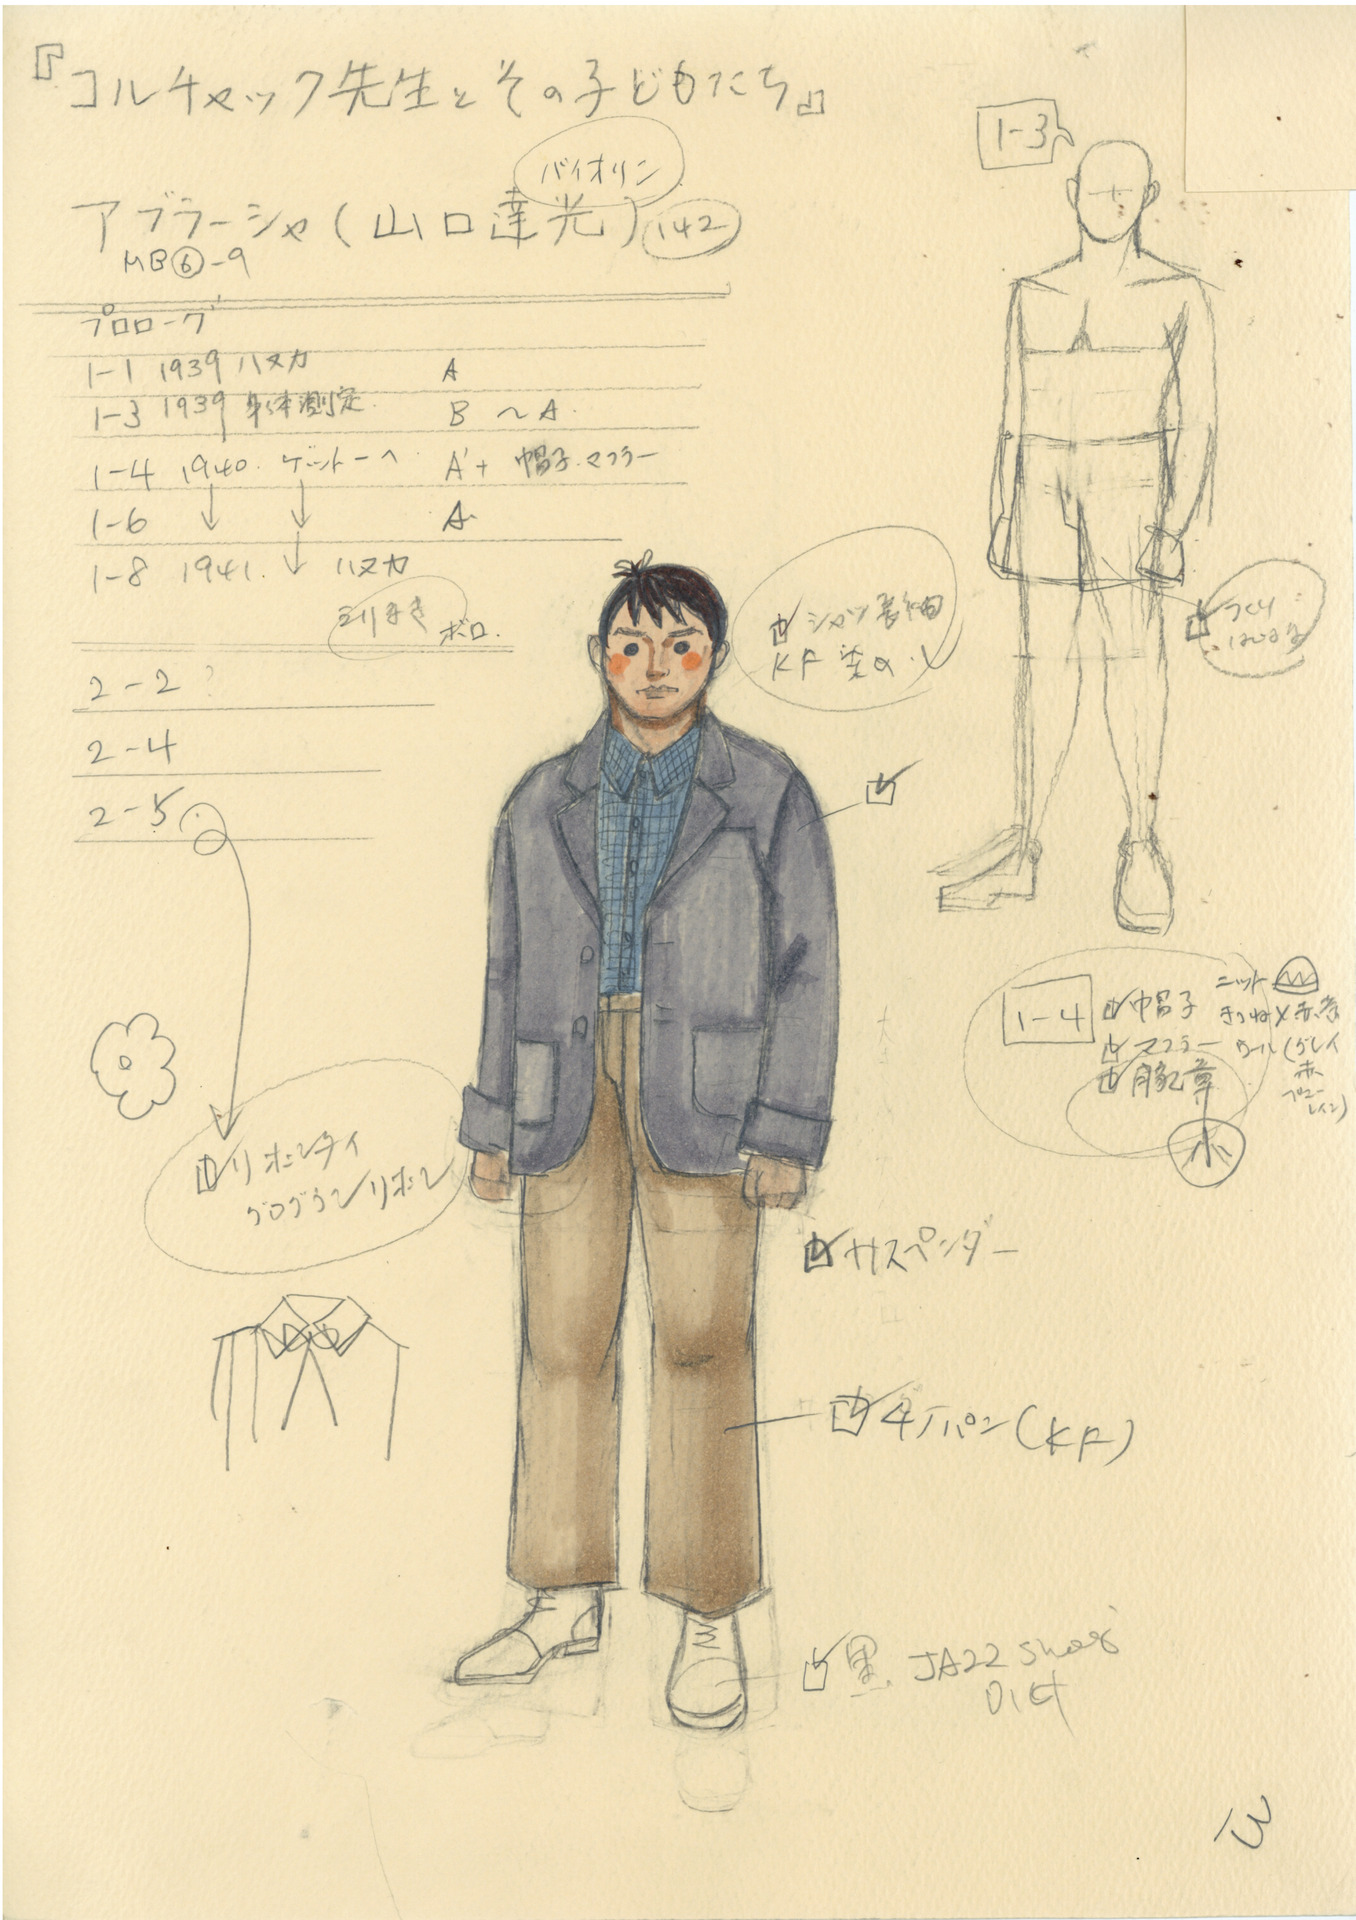 『コルチャック先生とその子どもたち』
バイオリン
アブラーシャ(山口達光) 142
MB⑥-9
プロローグ
1-1 1939 ハヌカ A
1-3 1939 身体測定 B 〜 A
1-4 1940. ゲットーへ A'+ 帽子.マフラー
1-6 ↓ ↓ A
1-8 1941. ↓ ハヌカ
ボロ.
2-2 ?
2-4
2-5
1-3
シャツ長袖
KF 染め
1-4 帽子 ニット
マフラー ウール(グレイ
赤
腕章
リボンタイ
グログランリボン
サスペンダー
パン(KF)
黒 JAZZ shoes